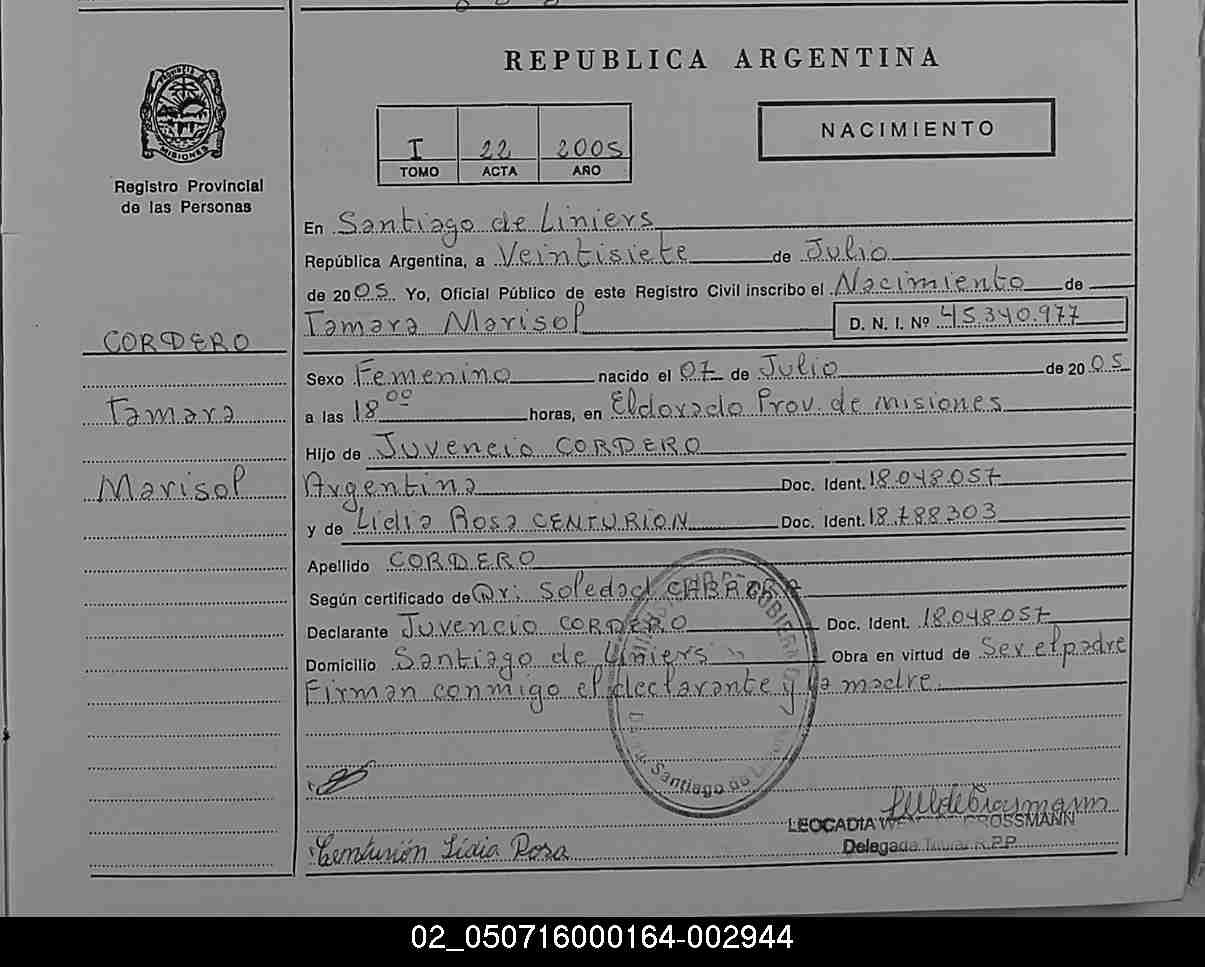 REPUBLICA ARGENTINA
PROVINCIA DE MISIONES
Registro Provincial
de las Personas
I 22 2005
TOMO ACTA AÑO
NACIMIENTO
En Santiago de Liniers
República Argentina, a Veintisiete de Julio
de 2005 Yo, Oficial Público de este Registro Civil inscribo el Nacimiento de
Tamara Marisol D. N. I. Nº 45.340.977
CORDERO
Tamara
Marisol
Sexo Femenino nacido el 07 de Julio de 2005
a las 18 00 horas, en Eldorado Prov. de misiones
Hijo de Juvencio CORDERO
Argentina Doc. Ident. 18.048.057
y de Lidia Rosa CENTURION Doc. Ident. 18.788.303
Apellido CORDERO
Según certificado de Dr: Soledad
Declarante Juvencio CORDERO Doc. Ident. 18.048.057
Domicilio Santiago de Liniers Obra en virtud de Ser el padre
Firman conmigo el declarante y la madre.
Santiago de
LEOCADIA GROSSMANN
Delegada Titular R.P.P.
Centurión Lidia Rosa
02_050716000164-002944